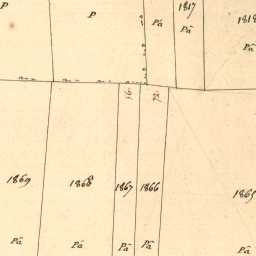 1817
P P Pâ Pâ 1818
Pâ
1869 1868 1867 1866 1865
Pâ Pâ Pâ Pâ Pâ